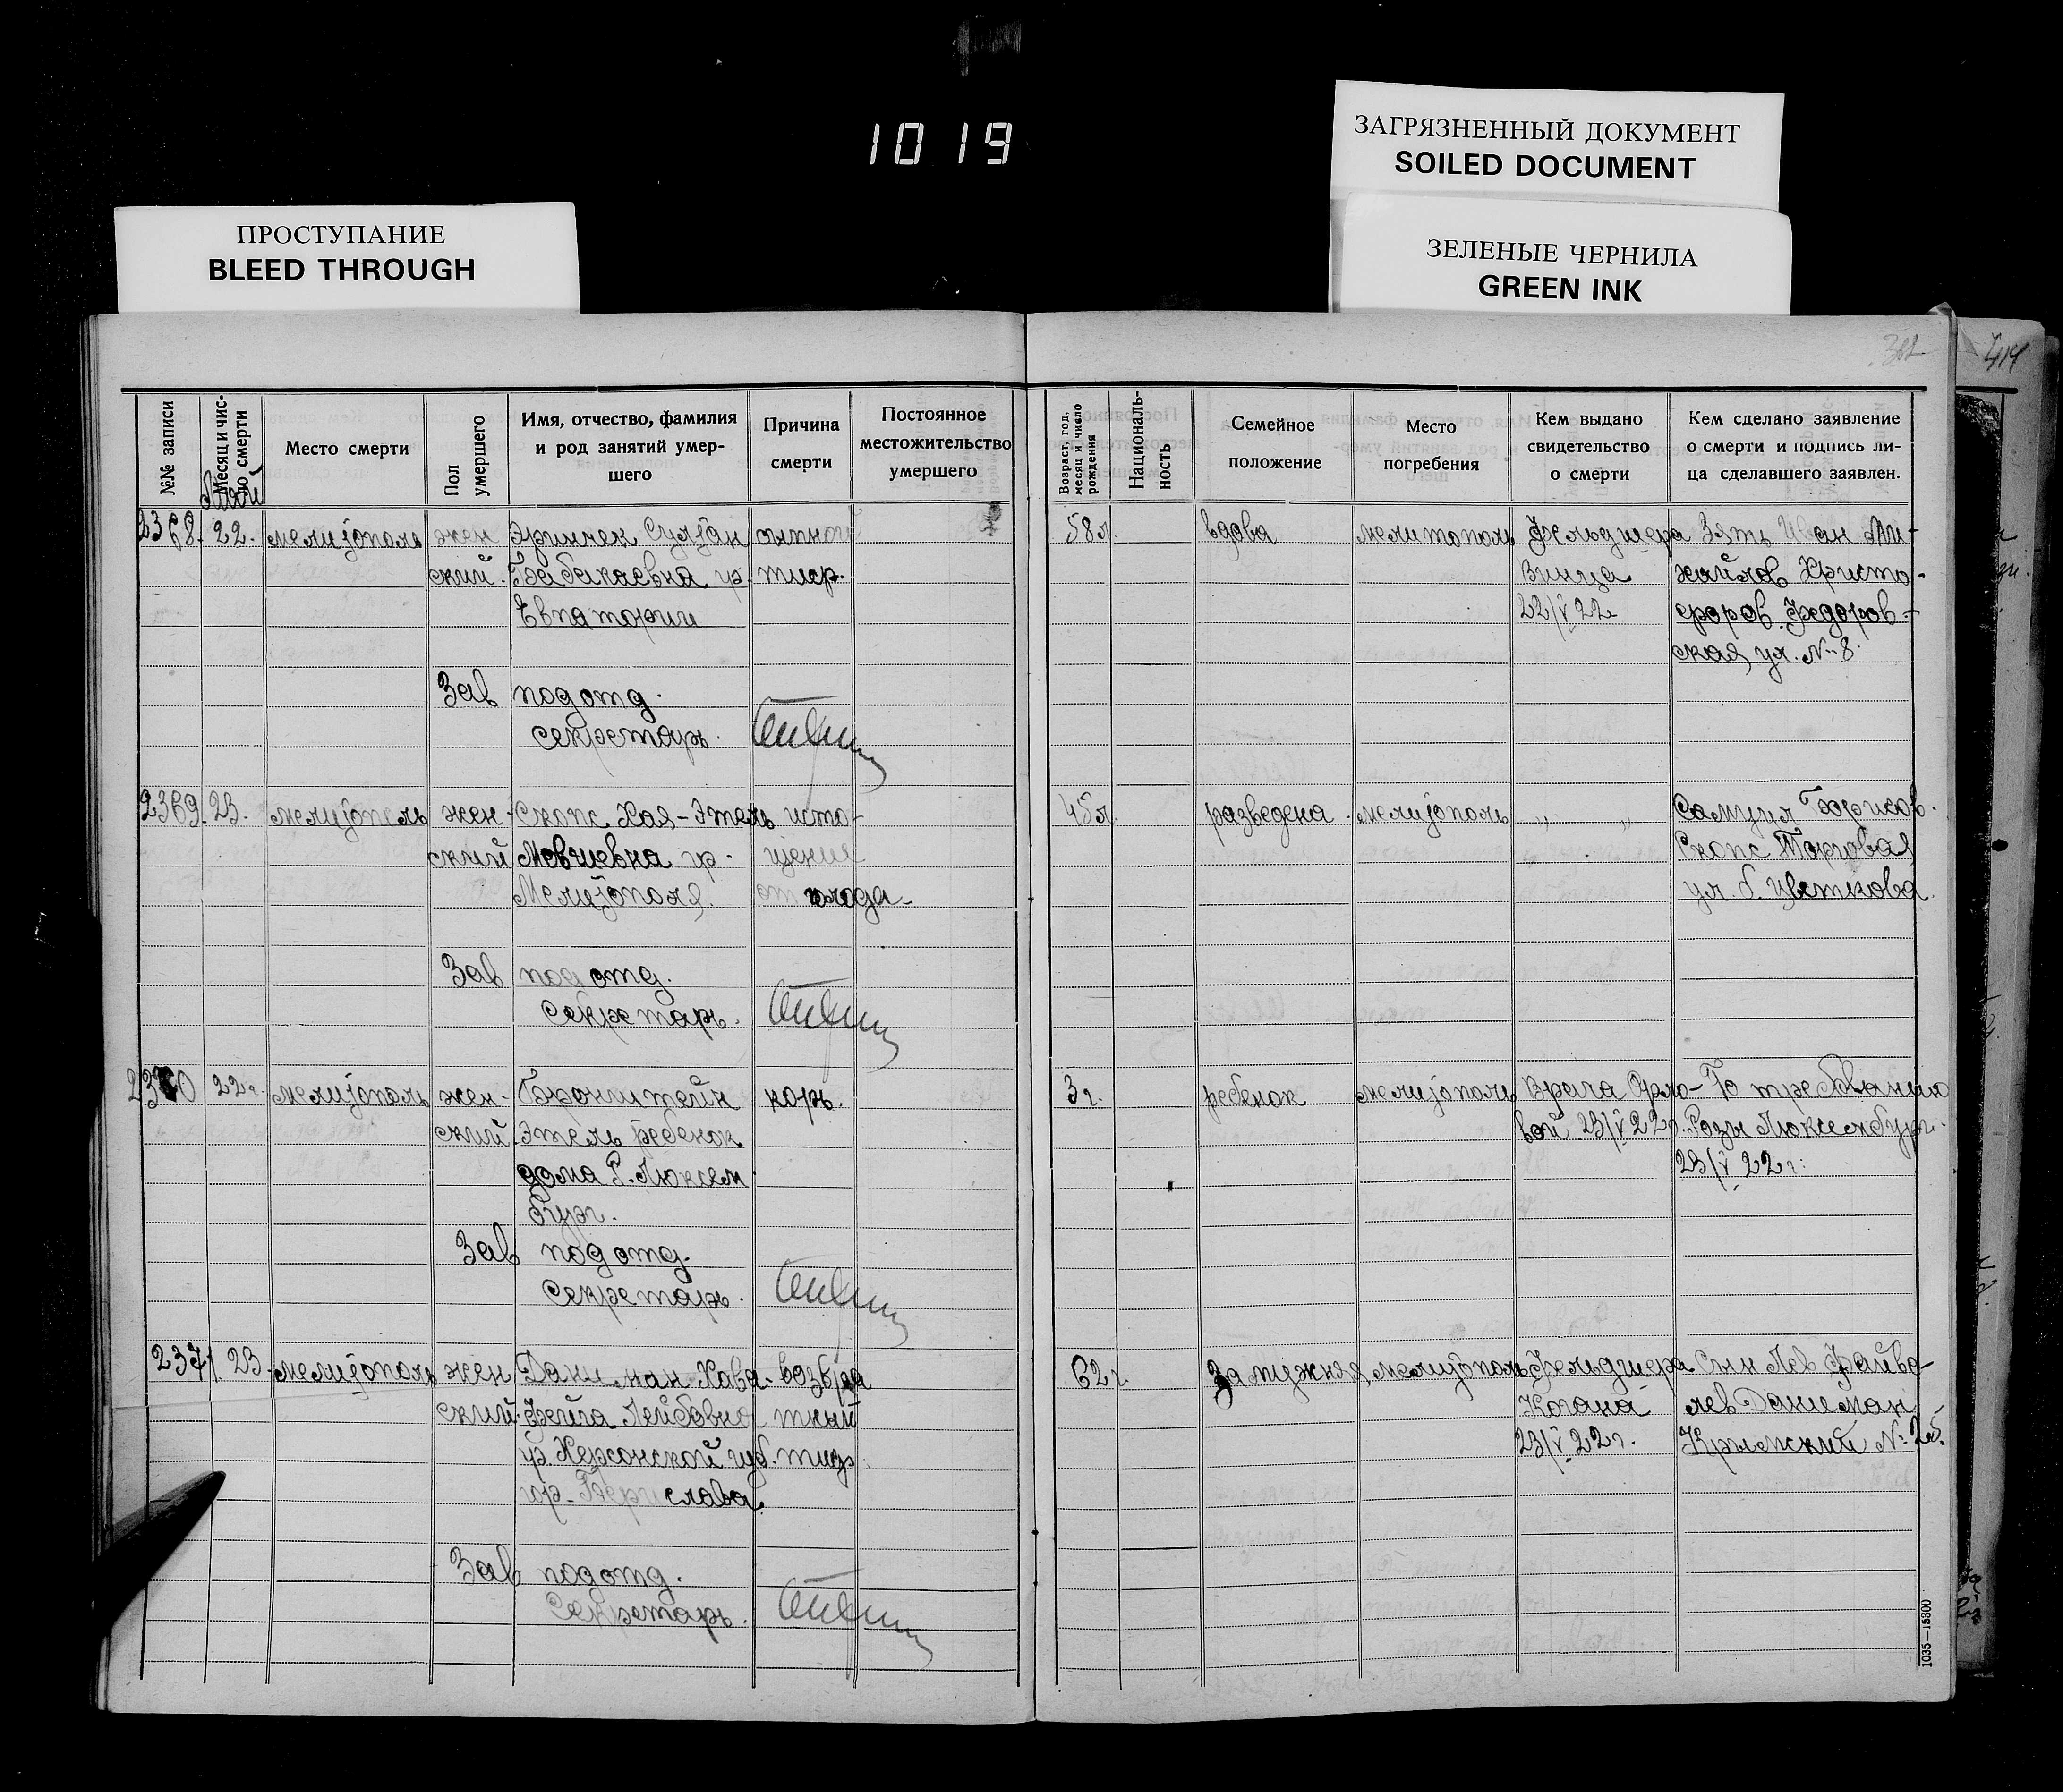 1019
ЗАГРЯЗНЕННЫЙ ДОКУМЕНТ
SOILED DOCUMENT
ПРОСТУПАНИЕ
BLEED THROUGH
ЗЕЛЕНЫЕ ЧЕРНИЛА
GREEN INK
№№ записи
Месяц и чис-
ло смерти
Место смерти
Пол
умершего
Имя, отчество, фамилия
и род занятий умер-
шего
Причина
смерти
Постоянное
местожительство
умершего
Возраст, год,
месяц и число
рождения
Националь-
ность
Семейное
положение
Место
погребения
Кем выдано
свидетельство
о смерти
Кем сделано заявление
о смерти и подпись ли-
ца сделавшего заявлен.
Май
2368. 22. Мелитополь жен Эринчек Султан сыпной 58 л. вдова Мелитополь Фельдшера Зять Иван Ми-
ский. Бабакаевна гр. тиф. хайлов Христо-
Евпатории 22/V 22 форов. Федоров-
ская ул. № 8.
Зав подотд.
Секретарь.
2369. 23. Мелитополь жен- Скопс Хая-Этель исто- 45 л. разведена Мелитополь „ „ Самуил Борисов.
ский Мовшевна гр. щение Скопс Торговая
Мелитополя. от голода. ул. д. Цветкова.
Зав подотд.
Секретарь.
2370 22 г. Мелитополь жен- Бронштейн корь. 3 г. ребенок Мелитополь Врача По требованию
ский. Этель ребенок 23/V 22 г. Розы Люксембург.
дома Р. Люксем 23/V 22 г.
бург.
Зав подотд.
Секретарь.
2371. 23. Мелитополь жен Даниман Хава- возвра 62 г. Замужняя Мелитополь Фельдшера Сын Лев Файве-
ский. Фейга Лейбовна тный Когана лев Даниман
гр. Херсонской губ. тиф. 23/V 22 г. Крымский №
гор. Берислава.
Зав подотд.
Секретарь.
1035—15800
414